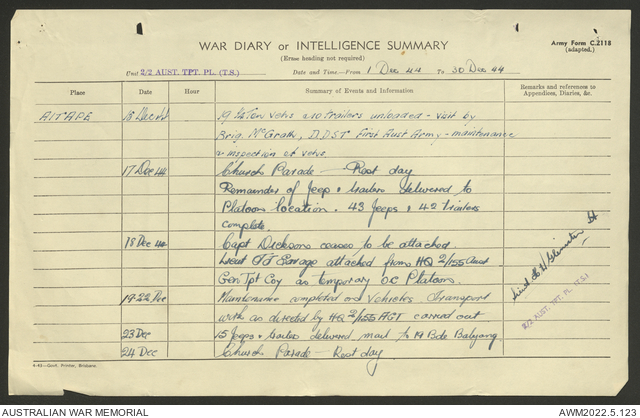 WAR DIARY or INTELLIGENCE SUMMARY
Army Form C.2118
(Erase heading not required)
(adapted.)
Unit 2/2 AUST. TPT. PL. (T.S.) Date and Time—From 1 Dec 44 To 30 Dec 44
Place Date Hour Summary of Events and Information Remarks and references to Appendices, Diaries, &c.
AITAPE 16 Dec 44 19 ¼ Ton vehs & 10 trailers unloaded - visit by
Brig. McGrath, D.D.S.T First Aust Army - maintenance
& inspection of vehs.
17 Dec 44 Church Parade — Rest day
Remainder of Jeep & trailers delivered to
Platoon location. 43 Jeeps & 42 trailers
complete.
18 Dec 44 Capt Dickson ceases to be attached.
Lieut Savage attached from HQ 2/155 Aust
Gen Tpt Coy as temporary OC Platoon.
19-22 Dec Maintenance completed on Vehicles Transport
work as directed by HQ 2/155 AGT carried out
23 Dec 15 Jeeps & trailers delivered mail to 19 Bde
24 Dec Church Parade — Rest day
Lieut
2/2 AUST. TPT. PL. (T.S.)
4-43—Govt. Printer, Brisbane.
AUSTRALIAN WAR MEMORIAL
AWM2022.5.123